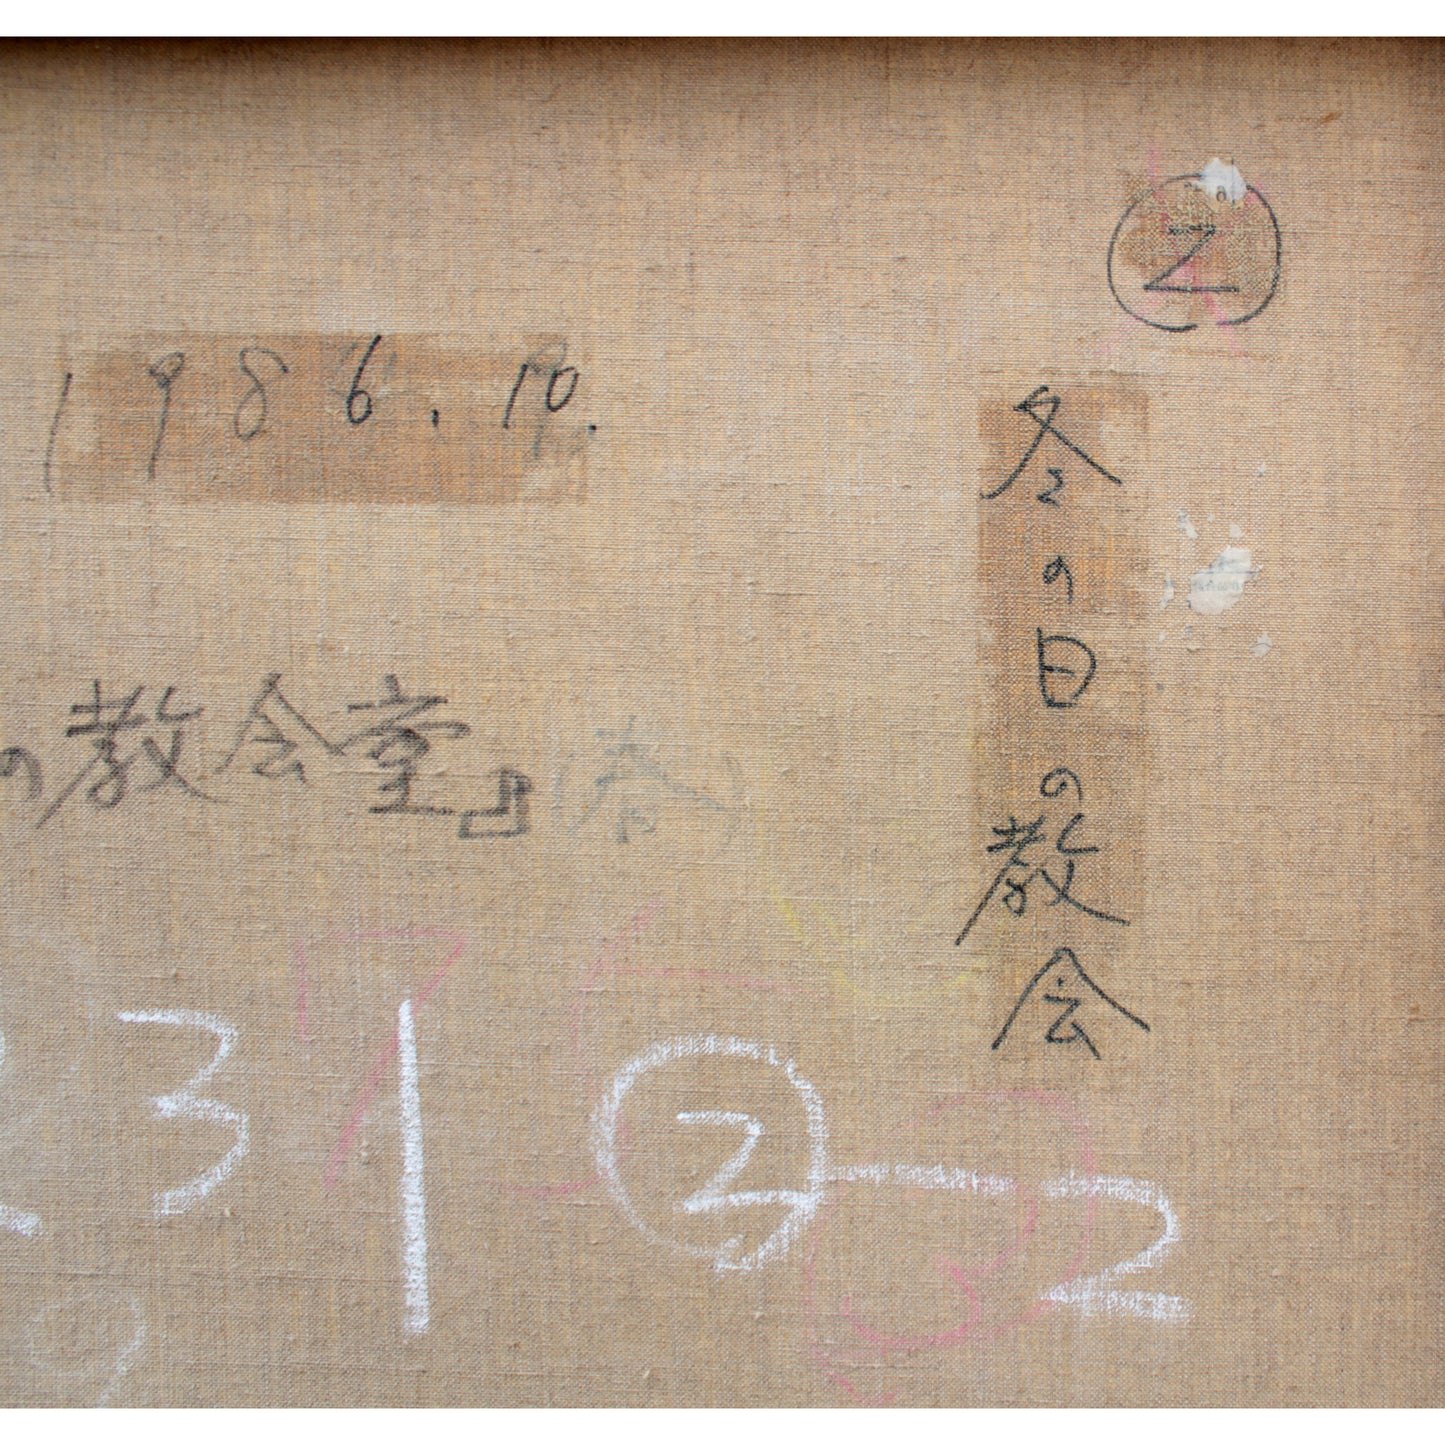 ②
1986.10.
冬の日の教会
の教会堂』(春)
31 ②-2